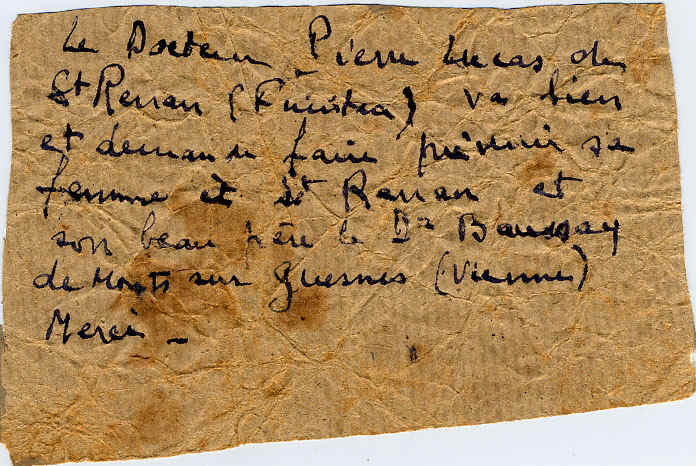 Le Docteur Pierre Lucas de
St Renan (Finistère) va bien
et demande faire prévenir sa
femme à St Renan et
son beau père le Dr Baussay
de Monts sur Guesnes (Vienne)
Merci _